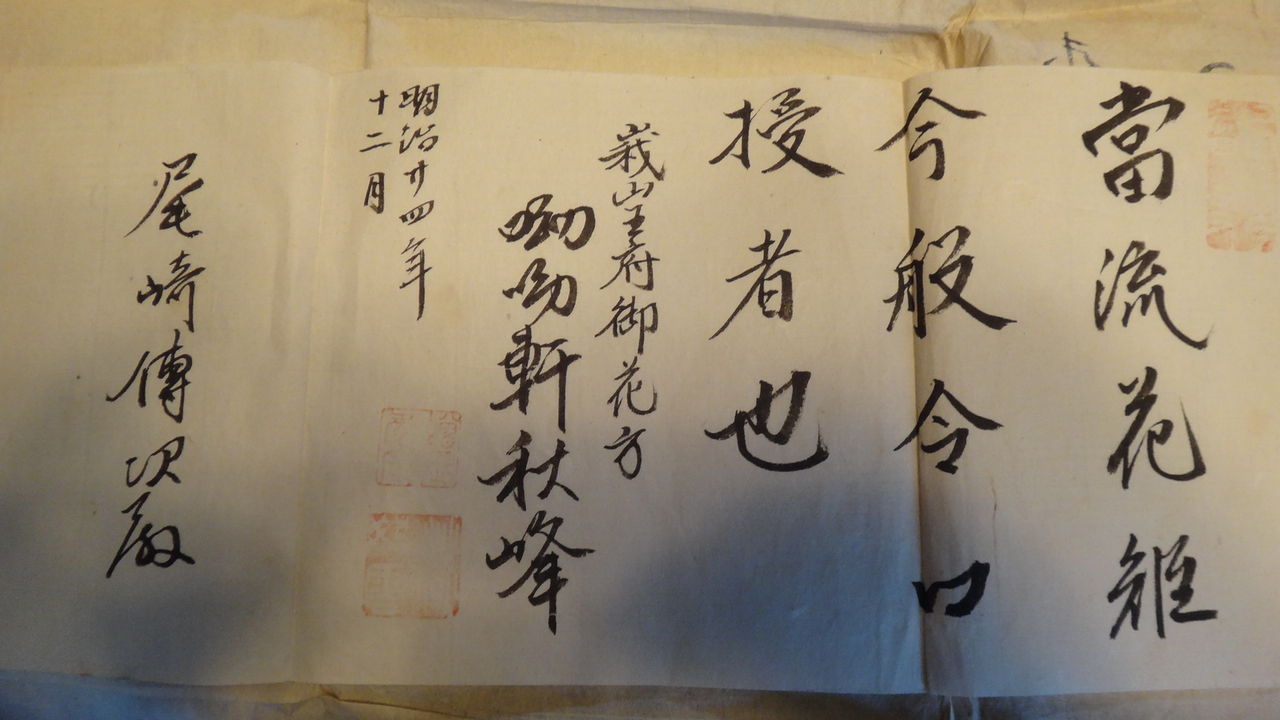 當流花矩
今般令口
授者也
府御花方
呦呦軒秋峰
明治廿四年
十二月
尾崎傳次殿